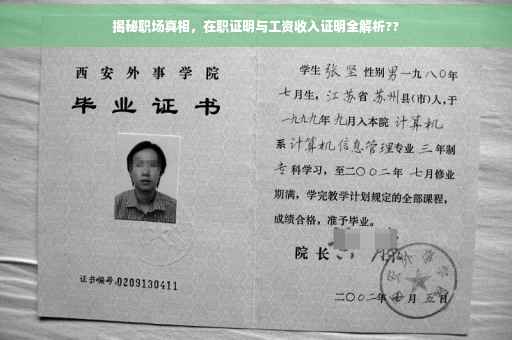 揭秘职场真相，在职证明与工资收入证明全解析??
西安外事学院
毕业证书
证书编号:0209130411
学生 张坚 性别 男 一九八〇年
七月生，江苏省苏州县(市)人，于
一九九九年九月入本院 计算机
系 计算机信息管理 专业 三 年制
专科学习，至二〇〇二年 七月修业
期满，学完教学计划规定的全部课程，
成绩合格，准予毕业。
院长
二〇〇二年 月五日